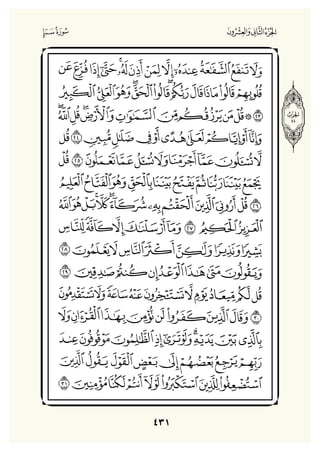 الجزء الثاني والعشرون سورة سبأ
ولا تنفع الشفعة عنده إلا لمن أذن له حتى إذا فزع عن
قلوبهم قالوا ماذا قال ربكم قالوا الحق وهو العلي الكبير
۞ قل من يرزقكم من السموت والأرض قل الله
وإنا أو إياكم لعلى هدى أو في ضلل مبين ٢٤ قل
لا تسءلون عما أجرمنا ولا نسءل عما تعملون ٢٥ قل
يجمع بيننا ربنا ثم يفتح بيننا بالحق وهو الفتاح العليم
٢٦ قل أروني الذين ألحقتم به شركاء كلا بل هو الله
العزيز الحكيم ٢٧ وما أرسلنك إلا كافة للناس
بشيرا ونذيرا ولكن أكثر الناس لا يعلمون ٢٨
ويقولون متى هذا الوعد إن كنتم صدقين ٢٩
قل لكم ميعاد يوم لا تستءخرون عنه ساعة ولا تستقدمون
٣٠ وقال الذين كفروا لن نؤمن بهذا القرءان ولا
بالذي بين يديه ولو ترى إذ الظلمون موقوفون عند
ربهم يرجع بعضهم إلى بعض القول يقول الذين
استضعفوا للذين استكبروا لولا أنتم لكنا مؤمنين ٣١
٤٣١